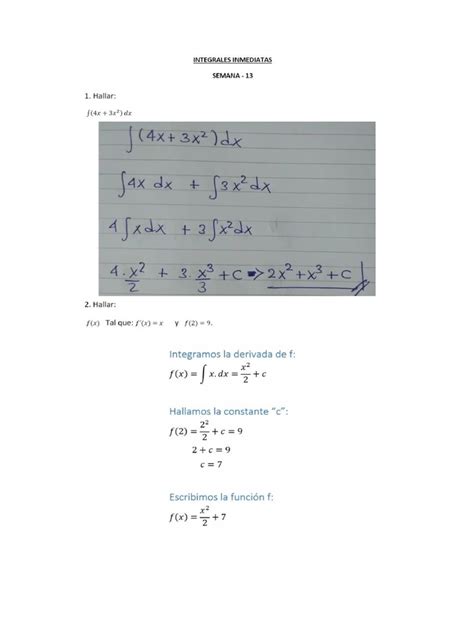 INTEGRALES INMEDIATAS
SEMANA - 13
1. Hallar:
∫(4x + 3x²) dx
∫(4x + 3x²)dx
∫4x dx + ∫3x²dx
4∫xdx + 3∫x²dx
4.x²/2 + 3.x³/3 + c => 2x² + x³ + c
2. Hallar:
f(x) Tal que: f'(x) = x y f(2) = 9.
Integramos la derivada de f:
f(x) = ∫ x. dx = x²/2 + c
Hallamos la constante "c":
f(2) = 2²/2 + c = 9
2 + c = 9
c = 7
Escribimos la función f:
f(x) = x²/2 + 7